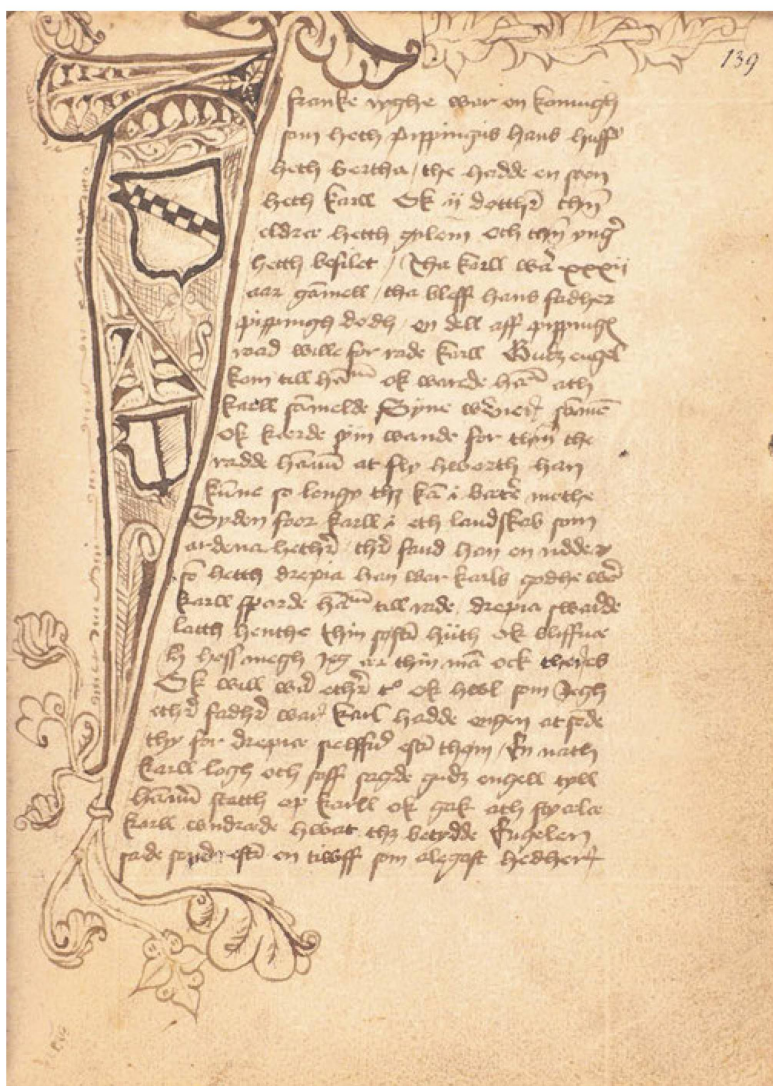 139
franke righe war en konnigh
som heth pippingus hans husf
heth bertha / the hadde en søn
heth karll Ok ij dotthr̄ thn̄
eldræ hetth gylem och thn̄ yngr̄
hetth besilet / Tha karll wā xxxij
aar gāmell / tha bleff hans fadher
pippingh dødh / en dell aff pippings
raad wille for rade karll Gudz engel
kom till hānum ok warede hām ath
karll sāmelde Syne wēner sāmē
ok kærde sijn wande for thm̄ the
radde hānū at fly hworth han
kūne so lenge thz kā i bætrē mothe
Syden foor karll i eth landskab som
ardena hethr̄ / thr̄ fand han en ridder
sō hetth drepia han war karls godhe wē
karll sporde hānum till rade / drepia swarde
latth henthe thin søstr̄ hiith ok bliffuæ
hoss megh Jeg ær thin mā ock theres
Ok will wær̄ ethr̄ tº ok hwl som Jegh
ethr̄ fadhr̄ war karl hadde engen at
thy for drepia sielffur̄ eftr̄ thom / En nath
karll logh och soff sagde gudz engell tyll
hānū statth op karll ok gak ath stiælæ
karll wndrede hwat thz betydde Engelen
sade eftr̄ en tiwff som alegast hedher